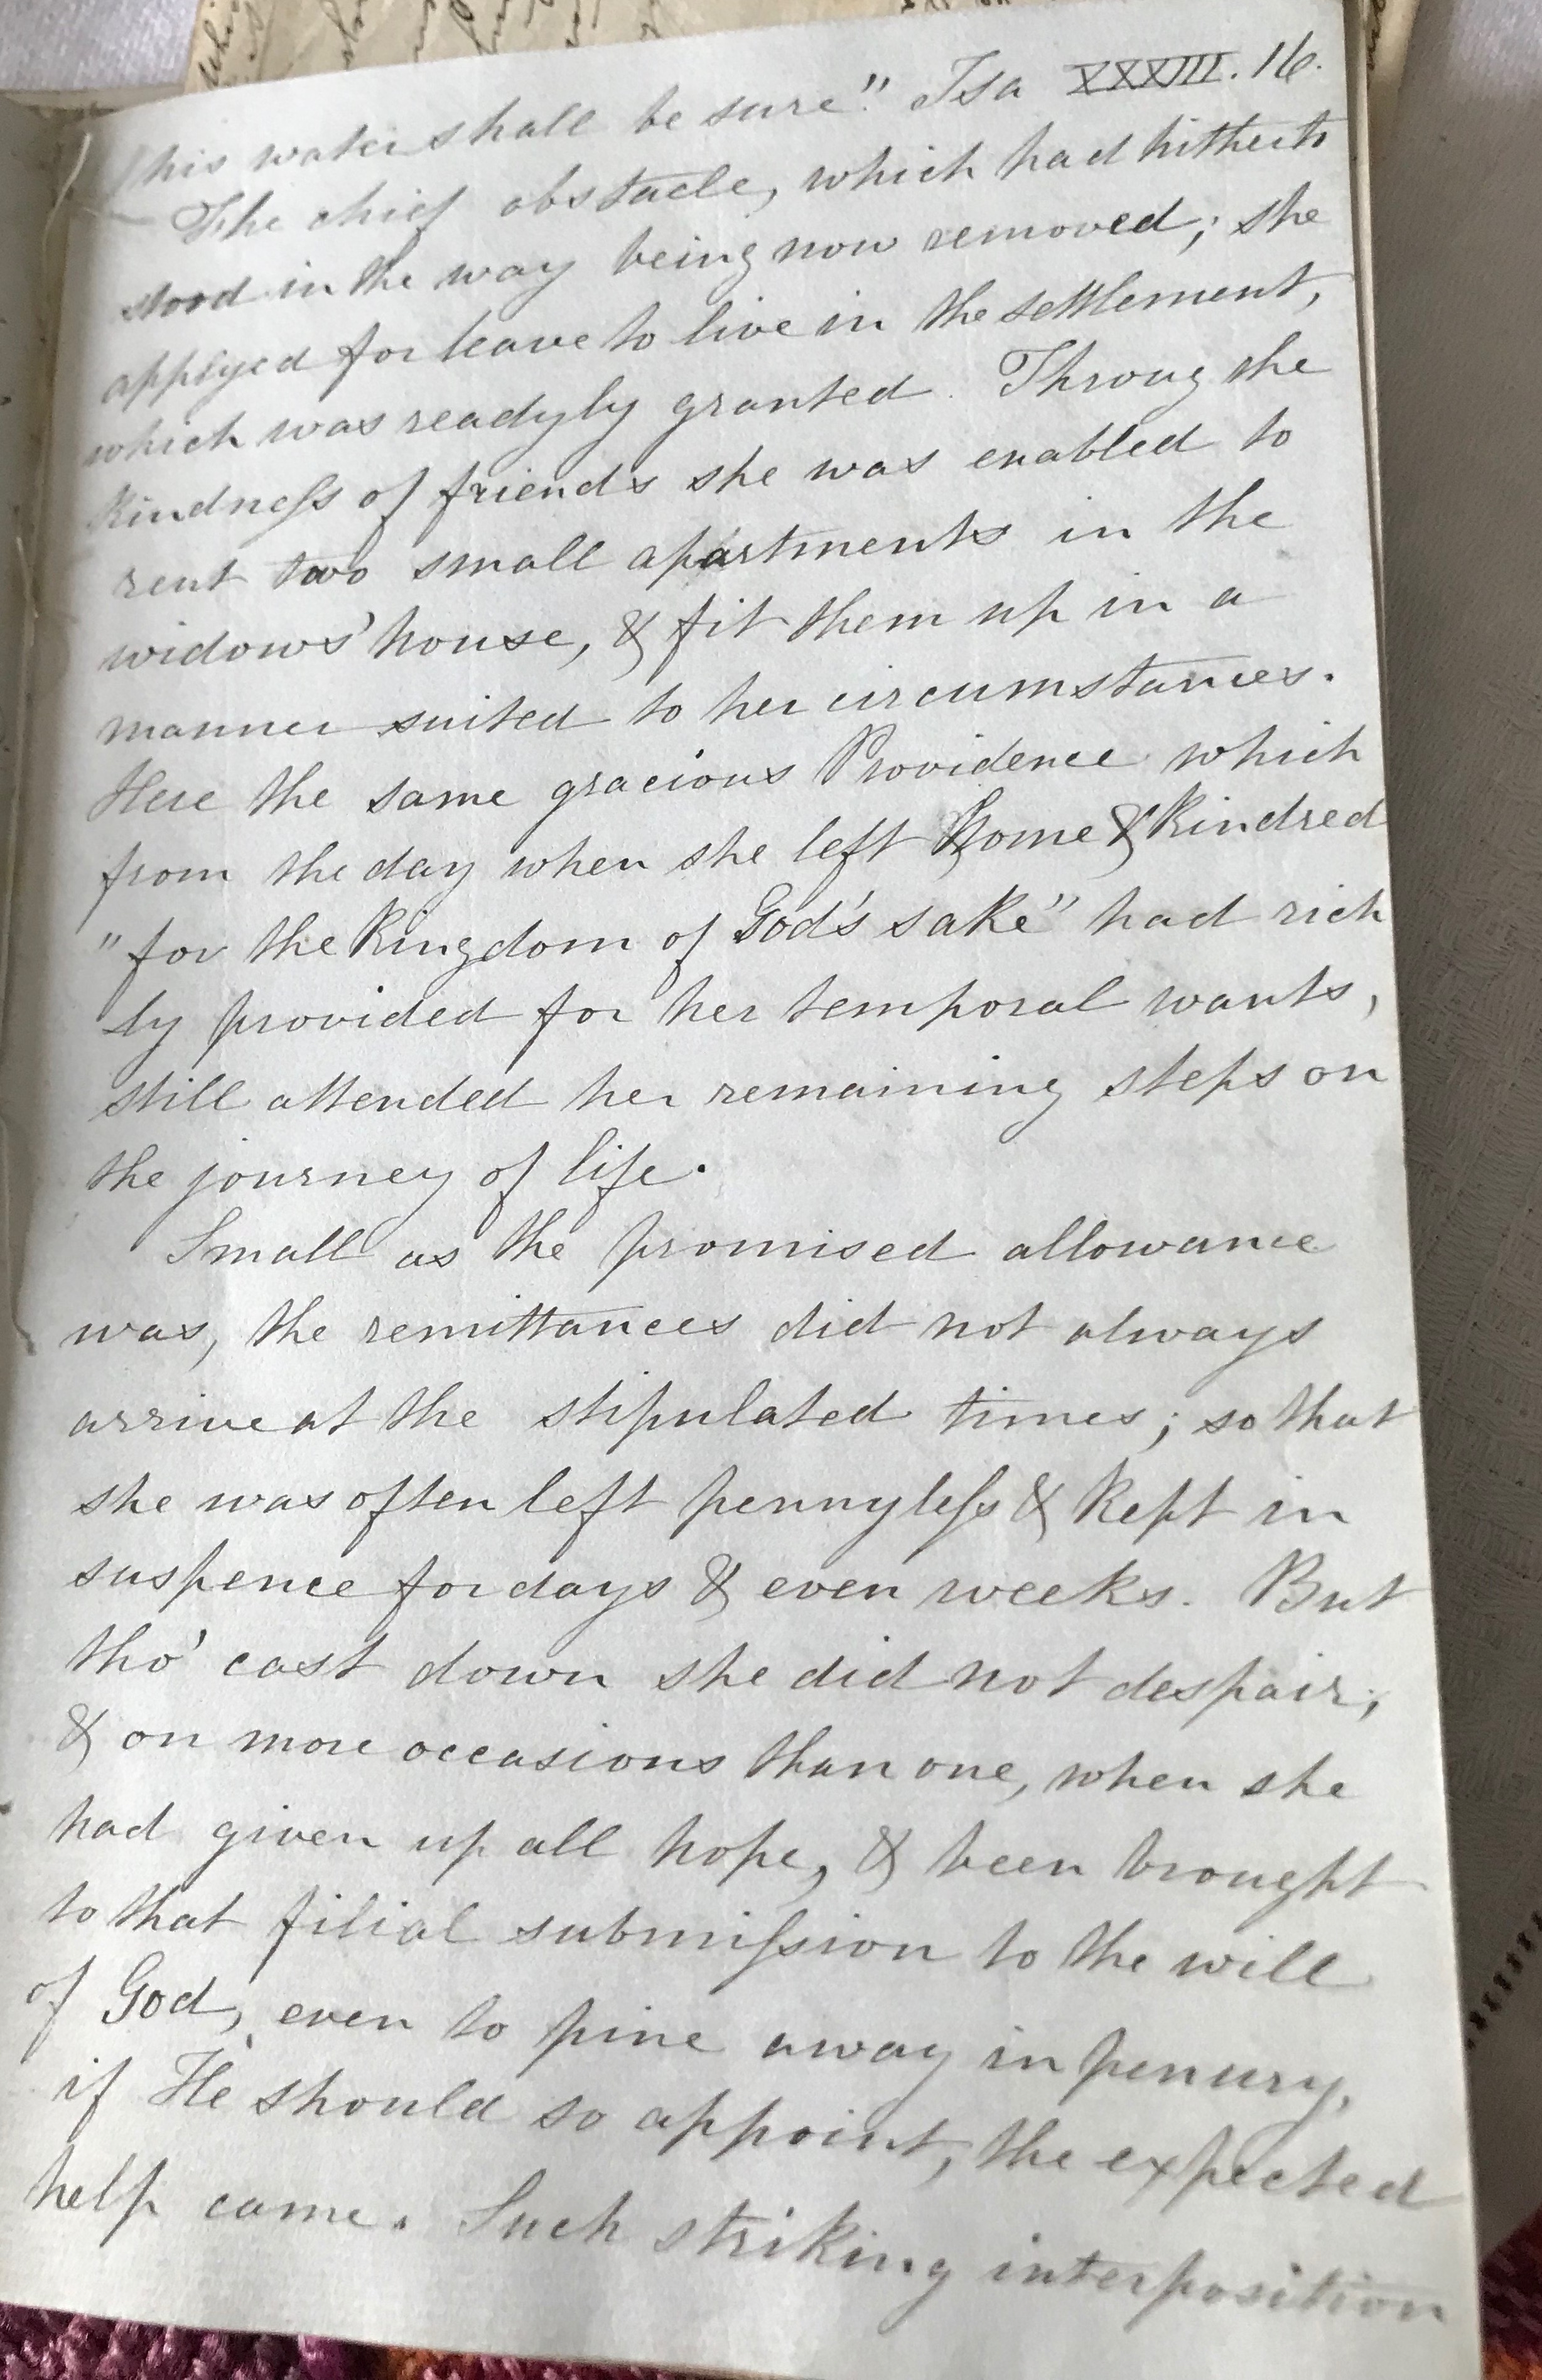 his water shall be sure". Isa XXXIII. 16.
The chief obstacle, which had hitherto
stood in the way being now removed; she
applyed for leave to live in the settlement,
which was readyly granted. Throug the
kindneſs of friends she was enabled to
rent two small apartments in the
widows' house, & fit them up in a
manner suited to her circumstances.
Here the same gracious Providence which
from the day when she left home & kindred
"for the kingdom of God's sake" had rich
ly provided for her temporal wants,
still attended her remaining steps on
the journey of life.
Small as the promised allowance
was, the remittances did not always
arrive at the stipulated times; so that
she was often left pennyleſs & kept in
suspence for days & even weeks. But
tho' cast down she did not despair;
& on more occasions than one, when she
had given up all hope, & been brought
to that filial submiſsion to the will
of God, even to pine away in penury,
if He should so appoint, the expected
help came. Such striking interposition